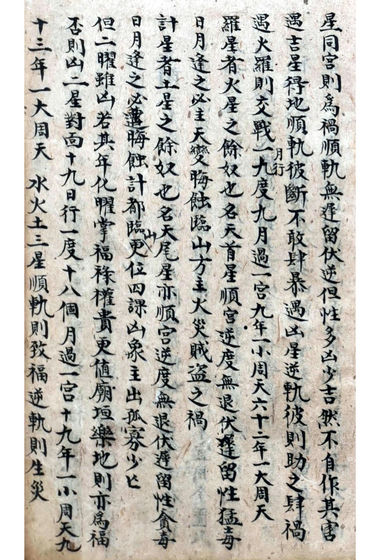 星同宮則爲禍順軌無遲留伏逆但性多凶少吉然不自作其害
遇吉星得地順軌彼斷不敢肆暴遇凶星逆軌彼則助之肆禍
遇火羅則交戰月行一九度九月過一宮九年一小周天六十二年一大周天
羅星者火星之餘奴也名天首星順宮逆度無退伏遲留性猛毒
日月逢之必主天變晦蝕臨山方主火災賊盜之禍
計星者土星之餘奴也名天尾星亦順宮逆度無退伏遲留性貪毒
日月逢之必遭晦蝕計都臨山更位四課凶象主出孤寡少亡
但二曜雖凶若其年化曜掌福祿權貴更值廟垣樂地則亦爲福
否則凶二星對面十九日行一度十八個月過一宮十九年一小周天九
十三年一大周天 水火土三星順軌則致福逆軌則生災